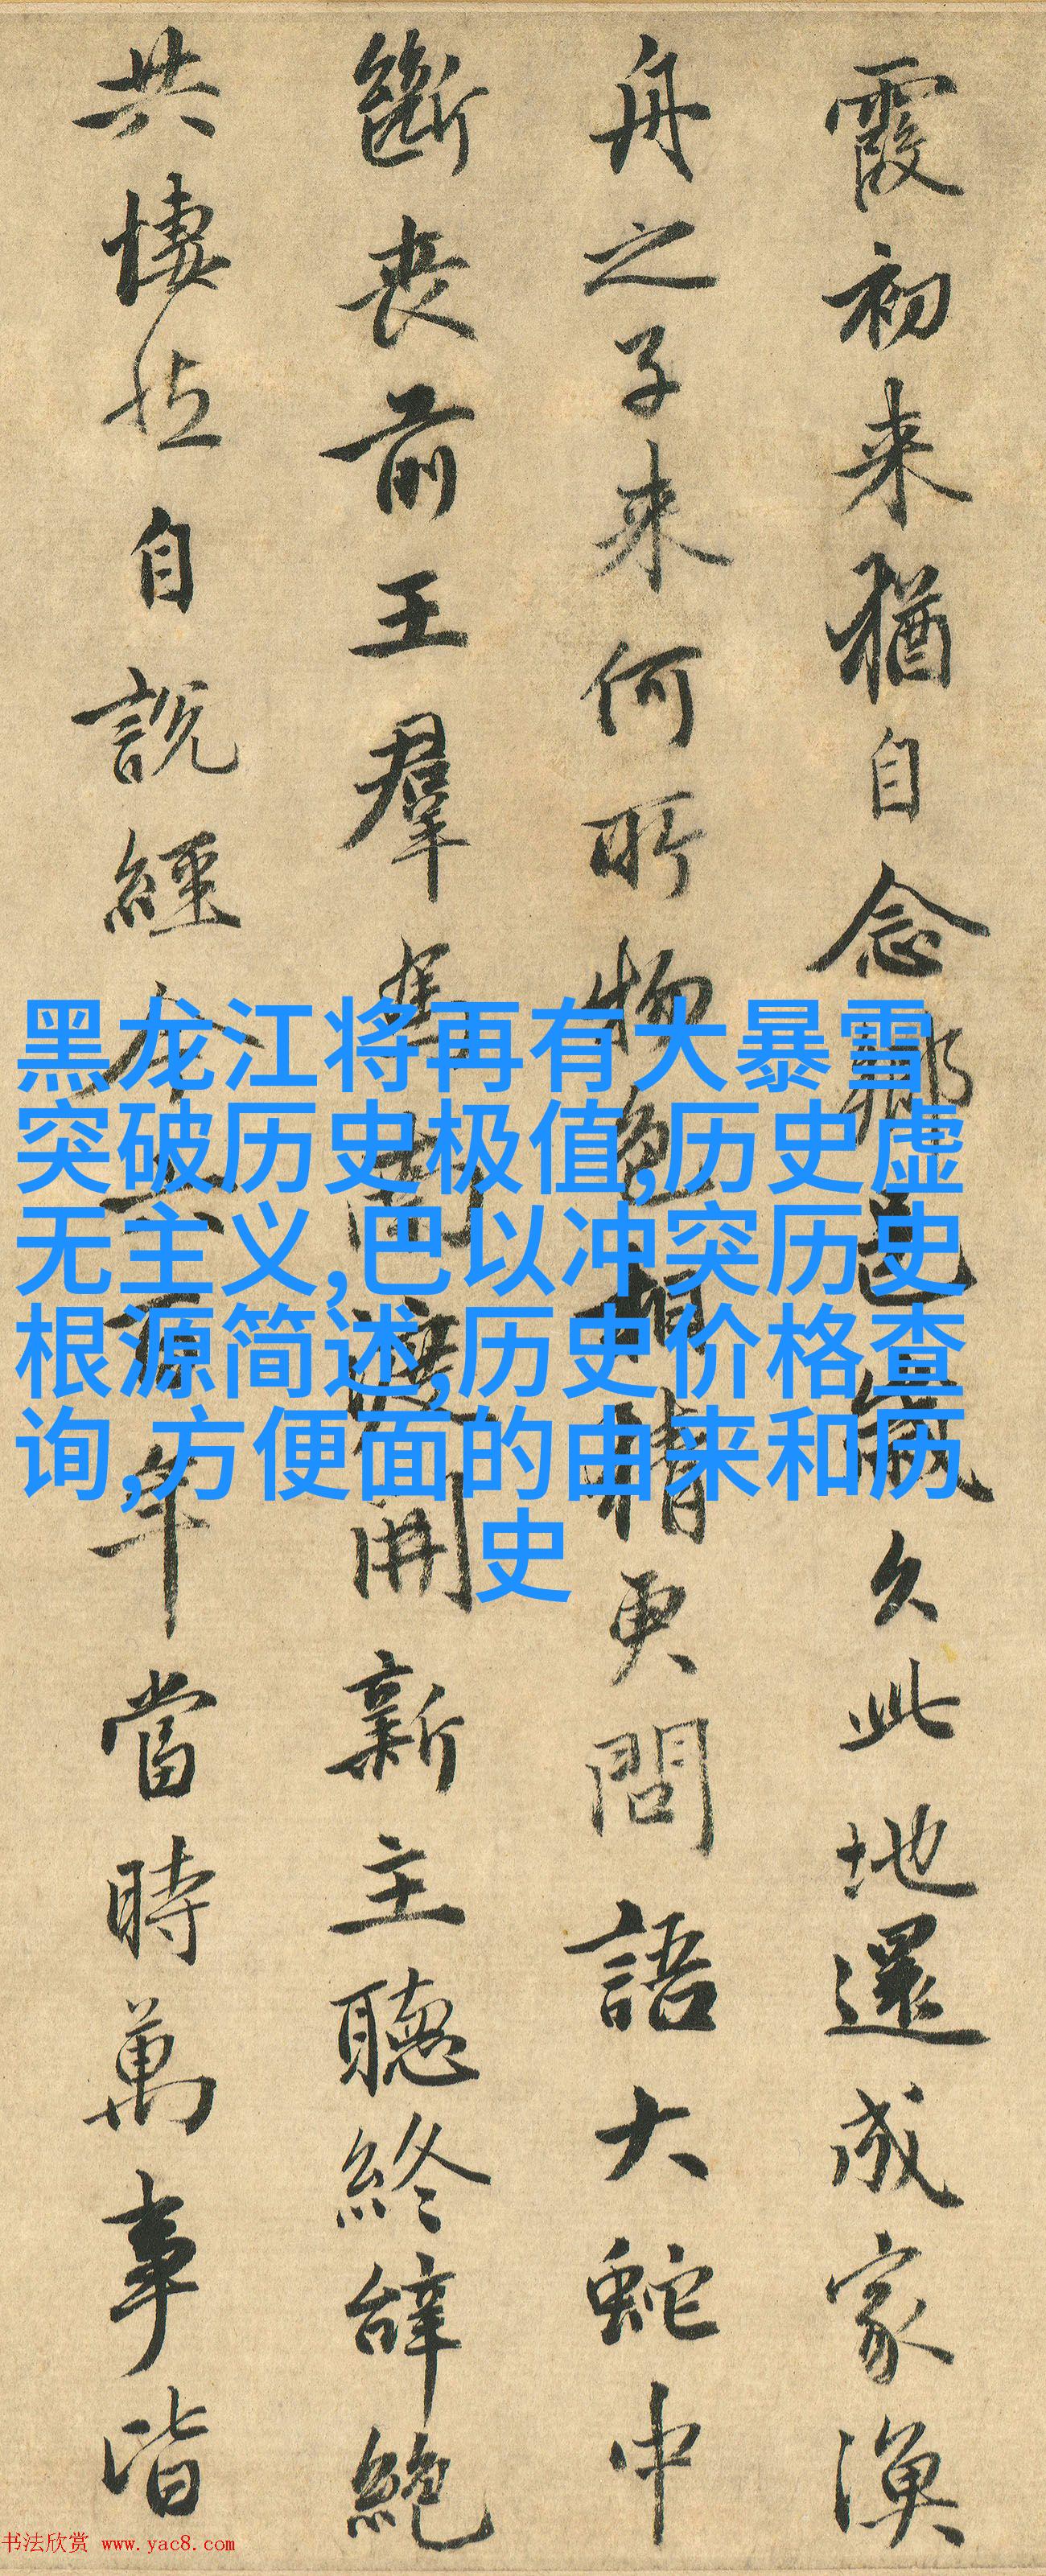 霞初来猶自念鄉邑歲久此地還成家漁
舟之子来何所物色相猜更問語大蛇中
斷喪前王羣馬南渡開新主聽終辭絶
共悽然自說經今六百年當時萬事皆
黑龙江将再有大暴雪
突破历史极值,历史虚
无主义,巴以冲突历史
根源简述,历史价格查
询,方便面的由来和历
史
书法欣赏 www.yac8.com